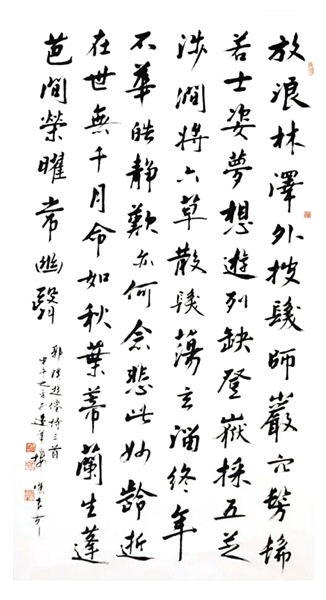 放浪林澤外披髮師巖穴髣髴
若士姿夢想遊列缺登嶽採五芝
涉澗將六草散髮蕩玄溜終年
不華皓靜歎亦何念悲此妙齡逝
在世無千月命如秋葉蔕蘭生蓬
芭間榮曜常幽翳
郭璞遊僊詩三首
甲午